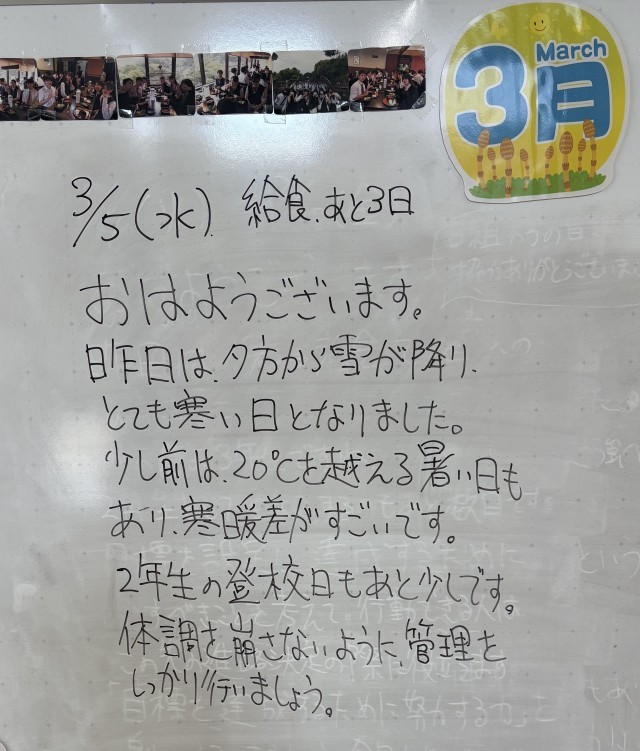 March
3月
3/5(水). 給食.あと3日
おはようございます。
昨日は.夕方から雪が降り.
とても寒い日となりました。
少し前は.20℃を越える暑い日も
あり.寒暖差がすごいです。
2年生の登校日もあと少しです。
体調を崩さないように.管理を
しっかり行いましょう。